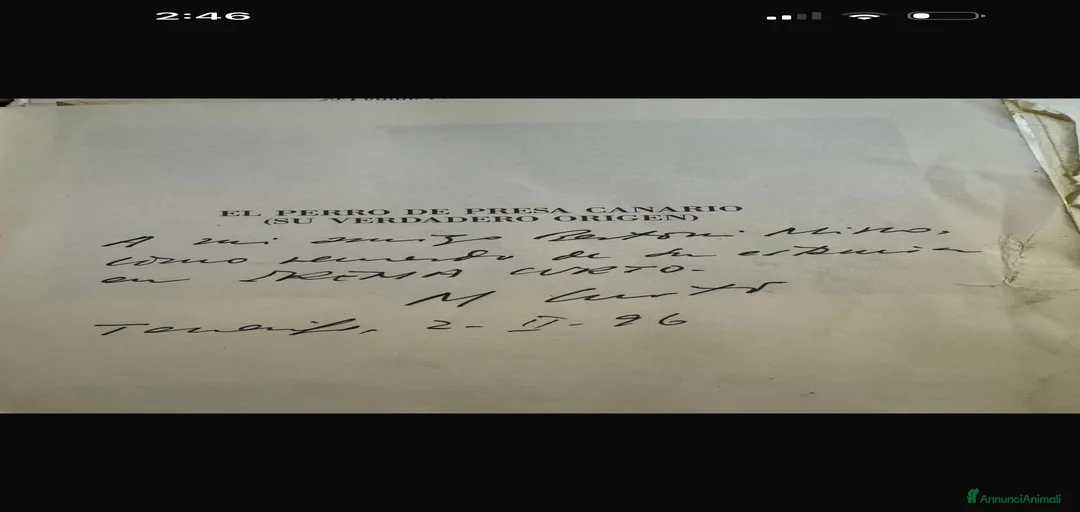 2:46
EL PERRO DE PRESA CANARIO
(SU VERDADERO ORIGEN)
A mi amigo Mino,
como recuerdo de su estancia
en IREMA CURTO.
M Curtó
Tenerife, 2-II-96
AnnunciAnimali